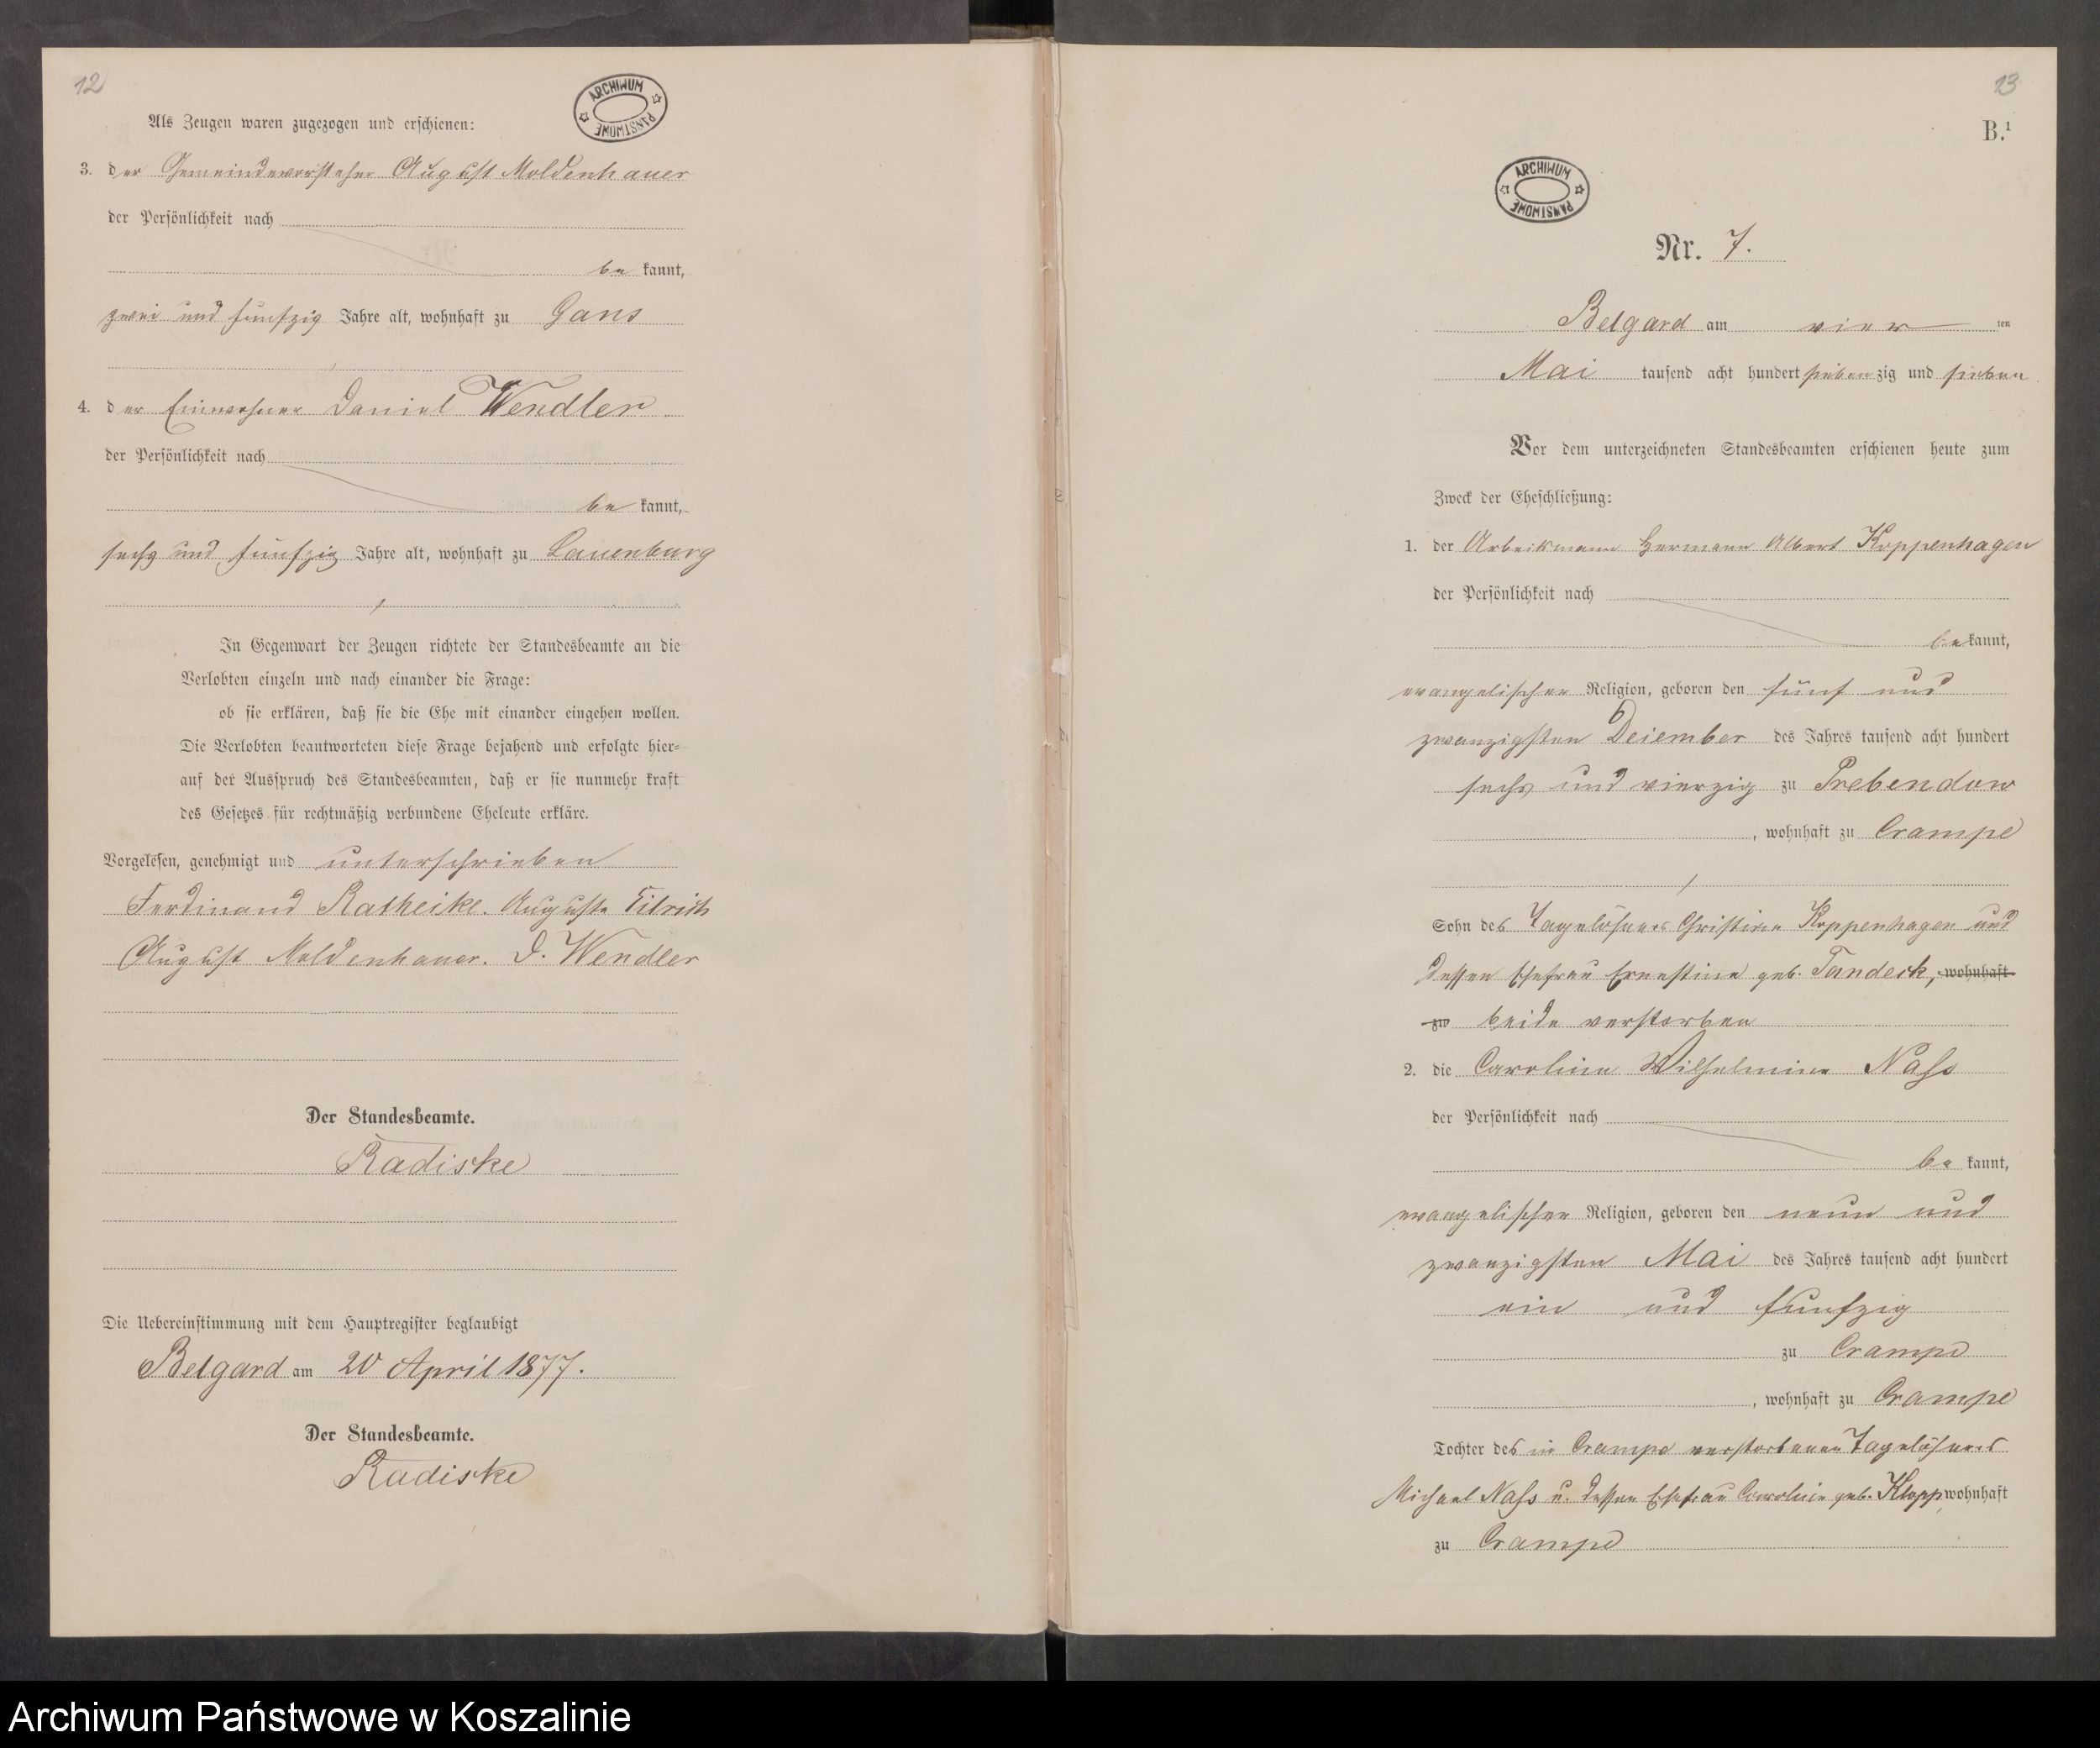 12
ARCHIWUM PAŃSTWOWE
Als Zeugen waren zugezogen und erschienen:
3. der Gemeindevorsteher August Moldenhauer
der Persönlichkeit nach
be kannt,
zwei und funfzig Jahre alt, wohnhaft zu Gans
4. der Einwohner Daniel Wendler
der Persönlichkeit nach
be kannt,
sechs und funfzig Jahre alt, wohnhaft zu Lauenburg
In Gegenwart der Zeugen richtete der Standesbeamte an die
Verlobten einzeln und nach einander die Frage:
ob sie erklären, daß sie die Ehe mit einander eingehen wollen.
Die Verlobten beantworteten diese Frage bejahend und erfolgte hier=
auf der Ausspruch des Standesbeamten, daß er sie nunmehr kraft
des Gesetzes für rechtmäßig verbundene Eheleute erkläre.
Vorgelesen, genehmigt und unterschrieben
Ferdinand Ratheike. Auguste
August Moldenhauer. D. Wendler
Der Standesbeamte.
Radiske
Die Uebereinstimmung mit dem Hauptregister beglaubigt
Belgard am 20 April 1877.
Der Standesbeamte.
Radiske
13
B.¹
ARCHIWUM PAŃSTWOWE
Nr. 7.
Belgard am vier ten
Mai tausend acht hundert sieben zig und sieben
Vor dem unterzeichneten Standesbeamten erschienen heute zum
Zweck der Eheschließung:
1. der Arbeitsmann Hermann Albert Koppenhagen
der Persönlichkeit nach
be kannt,
evangelischer Religion, geboren den fünf und
zwanzigsten Dezember des Jahres tausend acht hundert
sechs und vierzig zu Prebendow
, wohnhaft zu Crampe
Sohn des Tagelöhners Christian Koppenhagen und
dessen Ehefrau Ernestine geb. Tandeck, wohnhaft
zu beide verstorben
2. die Caroline Wilhelmine Nass
der Persönlichkeit nach
be kannt,
evangelischer Religion, geboren den neun und
zwanzigsten Mai des Jahres tausend acht hundert
ein und funfzig
zu Crampe
, wohnhaft zu Crampe
Tochter des in Crampe verstorbenen Tagelöhners
Michael Nass u. dessen Ehefrau Caroline geb. Klopp wohnhaft
zu Crampe
Archiwum Państwowe w Koszalinie